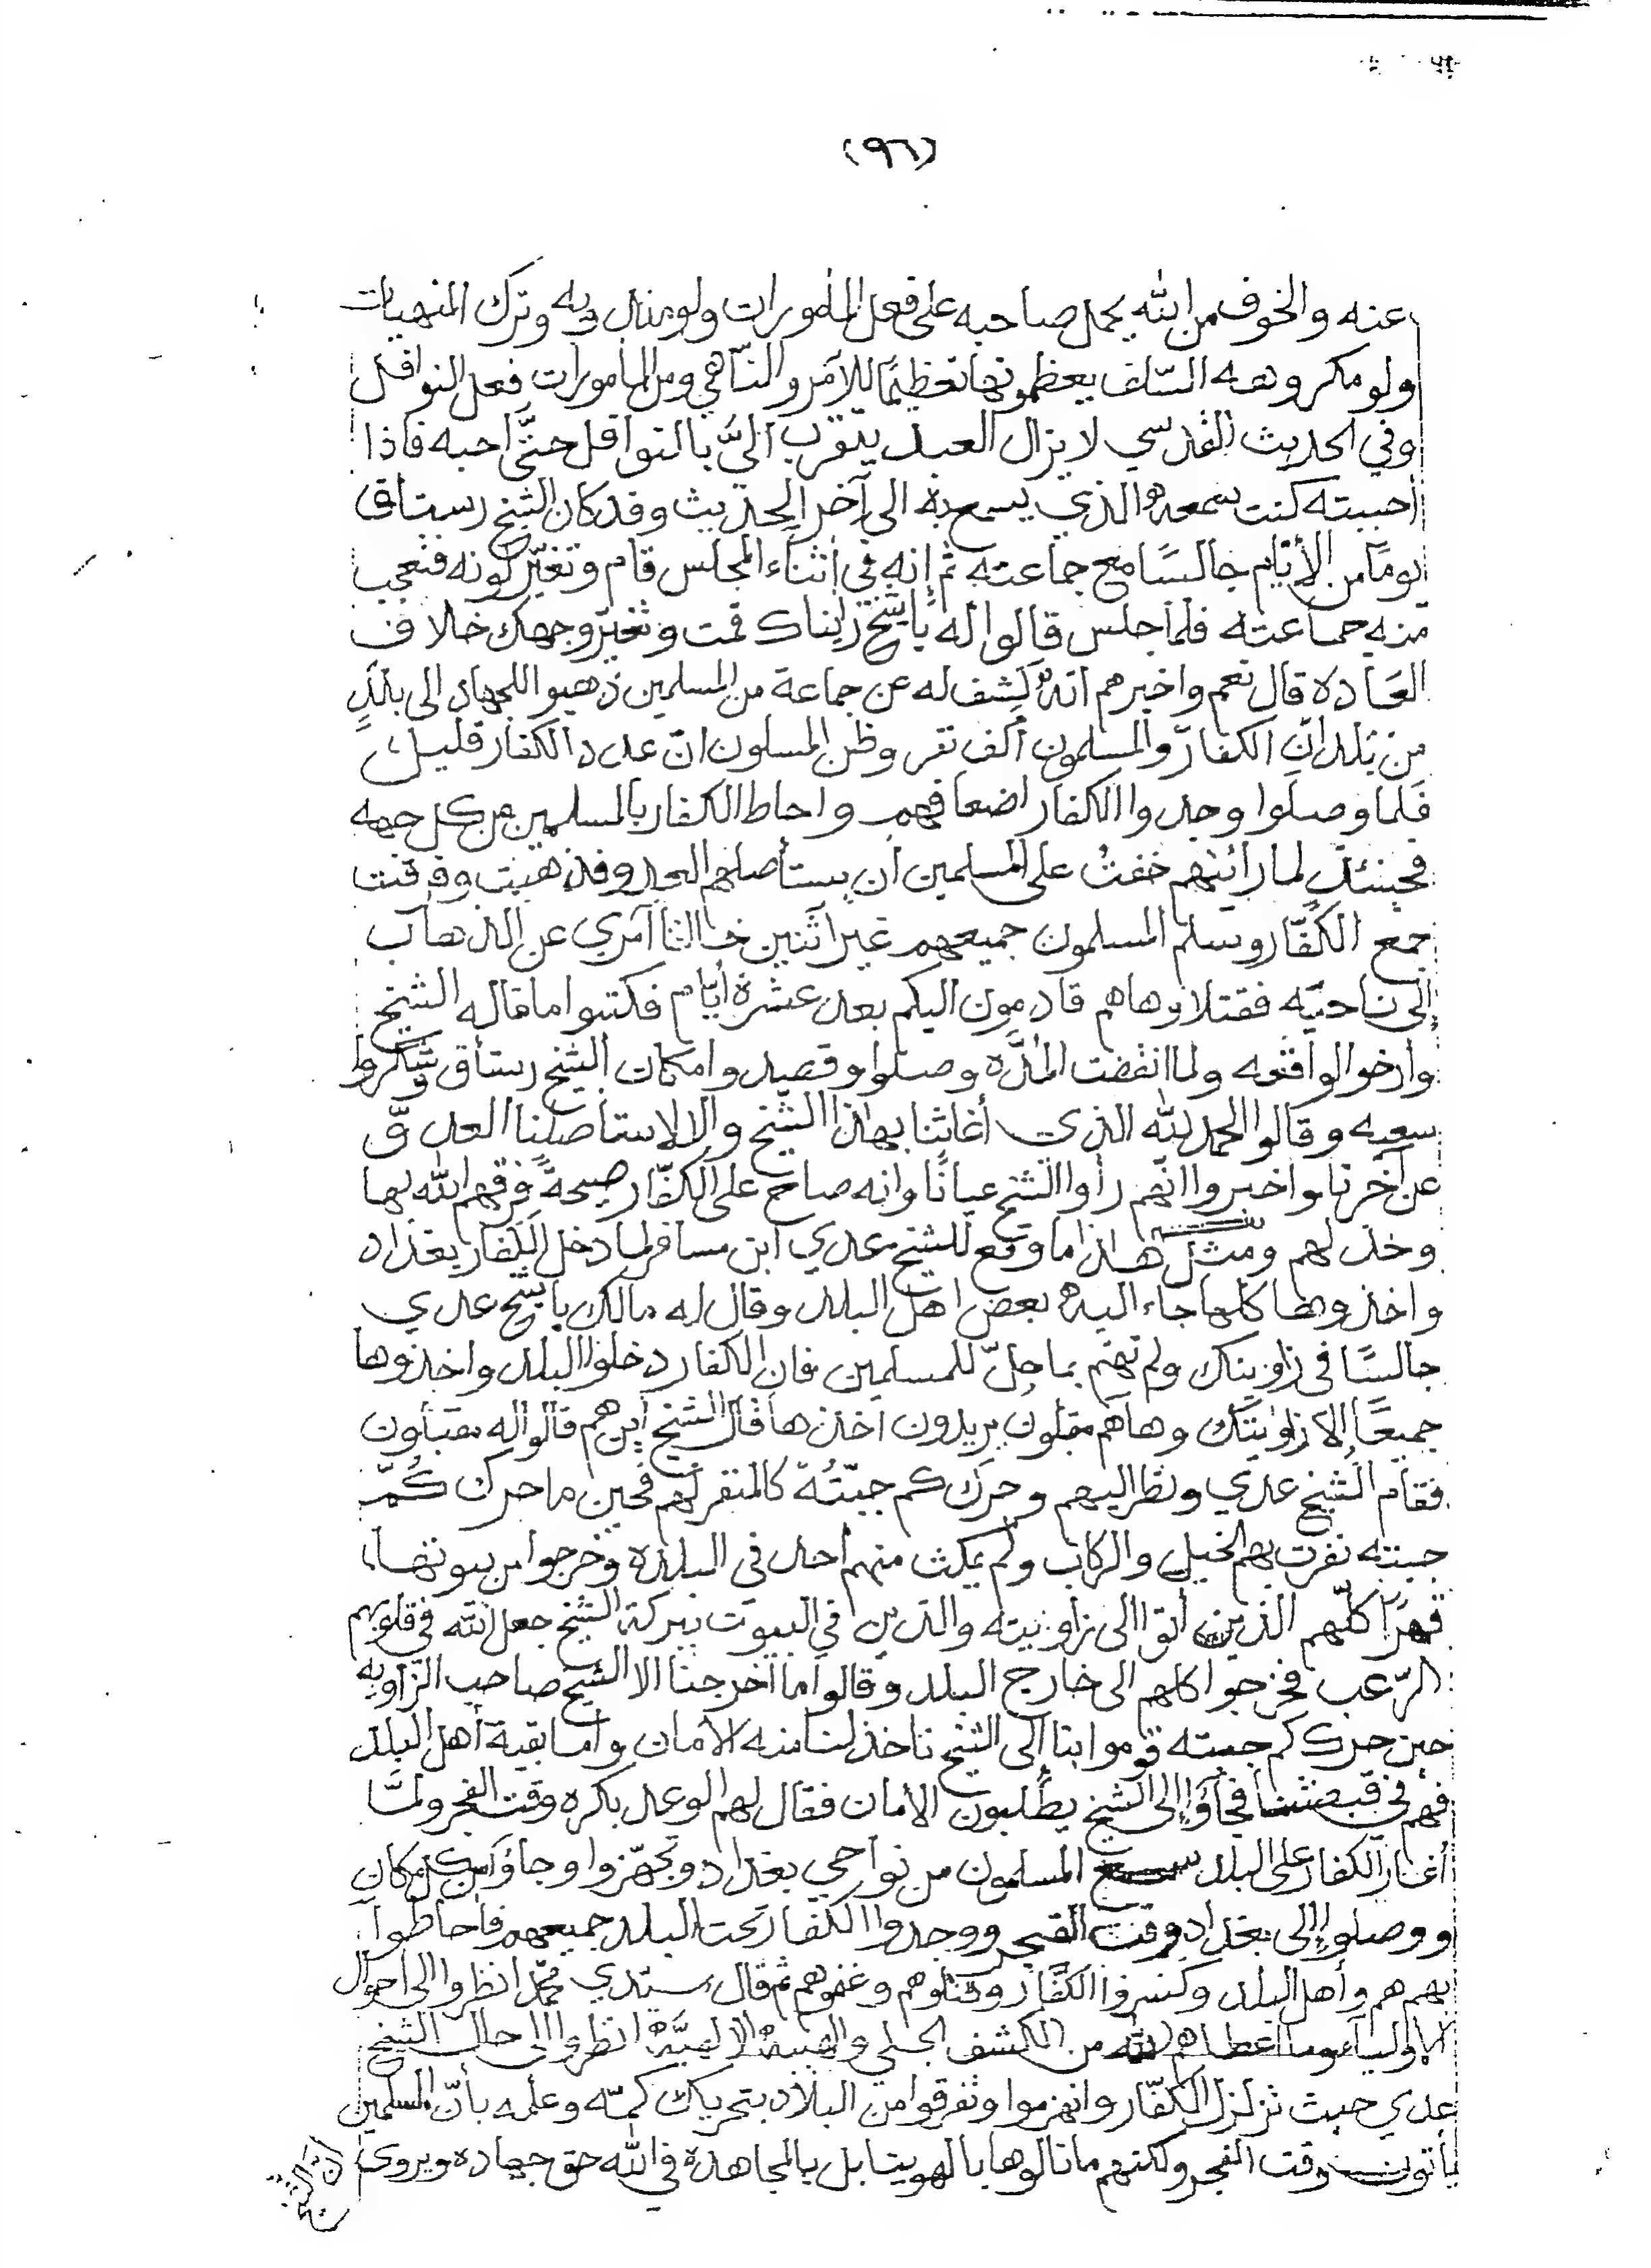 (٩٦)
عنه والخوف من الله يحمل صاحبه على فعل المأمورات ولو مندوبه وترك المنهيات
ولو مكروهه السّلف يعظمونها تعظيمًا للآمر والنّاهي ومن المأمورات فعل النوافل
وفي الحديث القدسي لا يزال العبد يتقرب اليَّ بالنوافل حتَّى احبه فاذا
احببته كنت سمعه الذي يسمع به الى آخر الحديث وقد كان الشيخ رستاق
يومًا من الأيّام جالسًا مع جماعته ثم إنه في اثناء المجلس قام وتغيّر لونه فتعجب
منه جماعته فلما جلس قالوا له يا شيخ رايناك قمت وتغير وجهك خلاف
العَاده قال نعم واخبرهم انهُ كُشف له عن جماعة من المسلمين ذهبوا للجهاد الى بلدٍ
من بلدان الكفار والمسلمون ألف نفر وظن المسلمون انّ عدد الكفار قليل
فلما وصلوا وجدوا الكفار اضعافهم واحاط الكفار بالمسلمين من كل جهه
فحينئذٍ لما رائيتهم خفتُ على المسلمين ان يستأصلهم العدو فذهبت وفرقت
جمع الكفّار وسلم المسلمون جميعهم غير اثنين خالفا آمري عن الذهاب
إلى ناحيه فقتلا وهاهم قادمون اليكم بعد عشرة أيّام فكتبوا ما قاله الشيخ
وارخوا الواقعه ولما انقضت المُدَّه وصلوا وقصدوا مكان الشيخ رستاق وشكروا
سعيه وقالوا الحمد لله الذي أغاثنا بهاذا الشّيخ والا لاستاصلنا العدوّ
عن آخرنا واخبروا انّهم رأوا الشيخ عيانًا وانه صاح على الكفّار صيحةً فرقهم الله بها
وخذلهم ومثل هاذا ما وقع للشيخ عدي ابن مسافر لما دخل الكفار بغداد
واخذوها كلها جاء اليه بعض اهل البلد وقال له مالك يا شيخ عدي
جالسًا في زاويتك ولم تهتم بما حلّ للمسلمين فان الكفار دخلوا البلد واخذوها
جميعًا إلا زاويتك وهاهم مقبلون يريدون اخذها قال الشيخ أين هم قالوا له مقبلون
فقام الشيخ عدي ونظر اليهم وحرك كم جبّتُهُ كالمنفر لهم فحين ما حرك كُمّ
جبته نفرت بهم الخيل والركاب ولم يمكث منهم احد في البلده وخرجوا من بيوتها
قهرًا كلّهم الذين اتوا الى زاويته والذين في البيوت ببركة الشيخ جعل الله في قلوبهم
الرّعب فخرجوا كلهم الى خارج البلد وقالوا ما اخرجنا الا الشيخ صاحب الزّاويه
حين حرك كم جبته قوموا بنا إلى الشيخ ناخذ لنا منه الأمان واما بقية أهل البلد
فهم في قبضتنا فجآؤا إلى الشيخ يطلبون الأمان فقال لهم الوعد بكره وقت الفجر ولمّا
أغار الكفار على البلد سمع المسلمون من نواحي بغداد وتجهّزوا وجاؤا من كل مكان
ووصلوا إلى بغداد وقت الفجر ووجدوا الكفار تحت البلد جميعهم فأحاطوا
بهم هم وأهل البلد وكسروا الكفَّار وقتلوهم وغنموهم ثم قال سيّدي محمّد انظروا الى احوال
الاوليآ وما اعطاهم الله من الكشف الجلي والهيبة الالهيَّة انظروا إلى حال الشيخ
عدي حيث تزلزل الكفّار وانهزموا وتفرقوا من البلاد بتحريك كمّه وعلمه بأنّ المسلمين
ياتون وقت الفجر ولكنهم ما نالوها بالهوينا بل بالمجاهدة في الله حق جهاده ويروى
انّ الشيخ